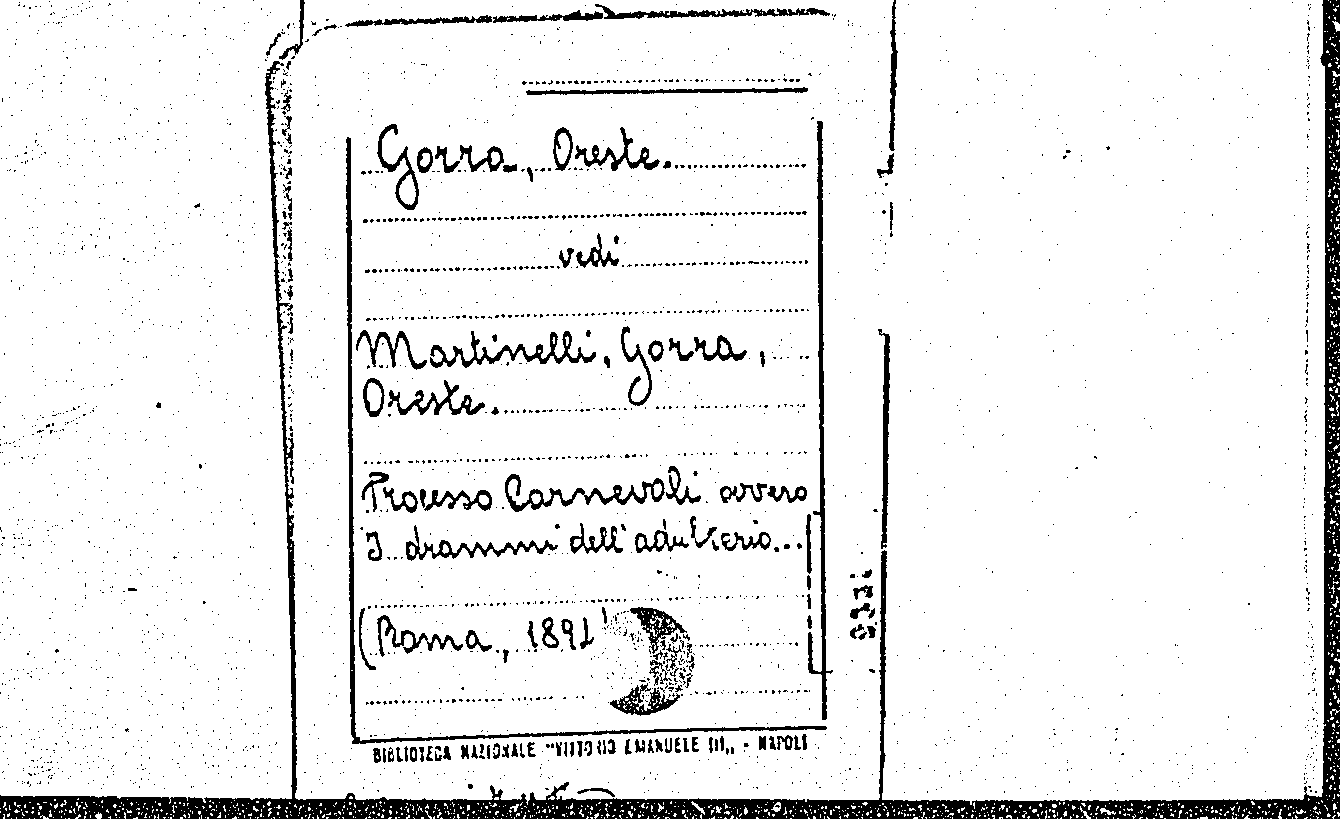 Gorra, Oreste.
vedi
Martinelli, Gorra,
Oreste.
Processo Carnevali ovvero
I drammi dell'adulterio...
(Roma, 1891)
BIBLIOTECA NAZIONALE "VITTORIO EMANUELE III„ - NAPOLI